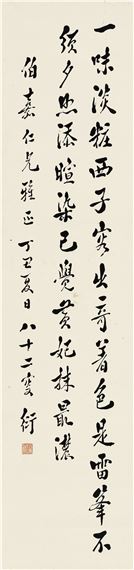 一味淡粧西子容出奇着色是雷峯不
須夕照添暄染已覺黃妃抹最濃
伯嘉仁兄雅正 丁丑夏日 八十二叟 衍